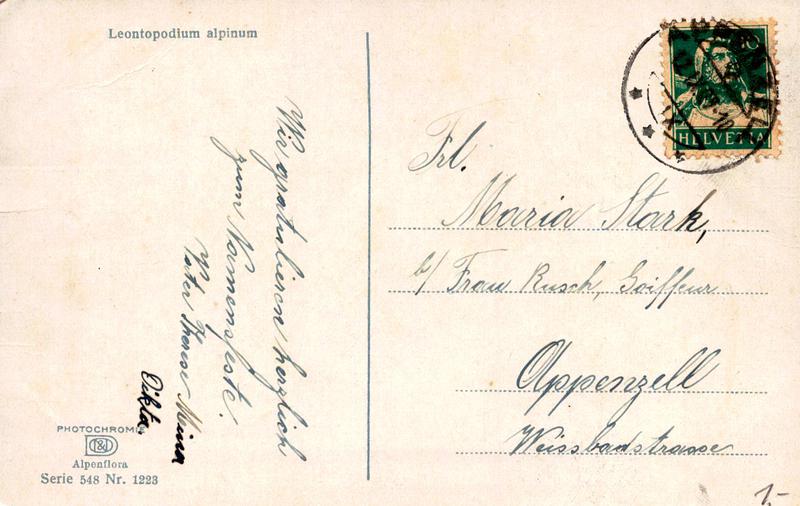 Leontopodium alpinum
Wir gratulieren herzlich
zum Namensfeste!
Vater Therese Mina
Dikta.
PHOTOCHROMIE
D&J
Alpenflora
Serie 548 Nr. 1223
10
HELVETIA
APPENZELL
Frl.
Maria Stark,
b/ Frau Rusch, Coiffeur
Appenzell
Weissbadstrasse
1.-